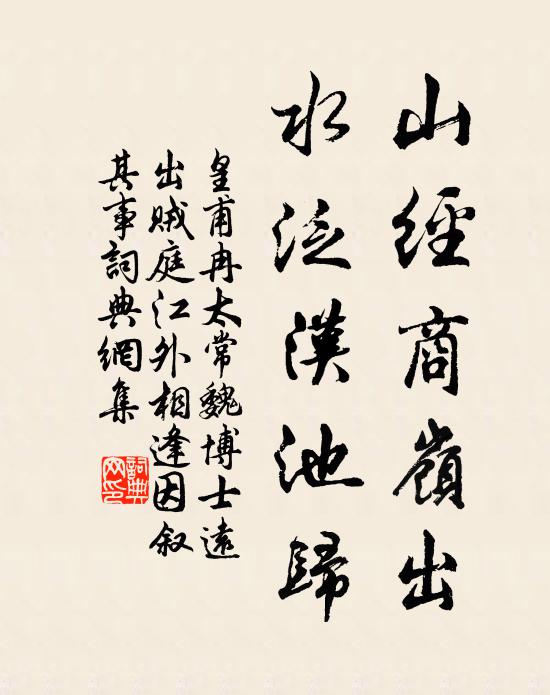 山經商嶺出
水泛漢池歸
皇甫冉太常魏博士遠
出賊庭江外相逢因叙
其事詞典網集
詞典
网印